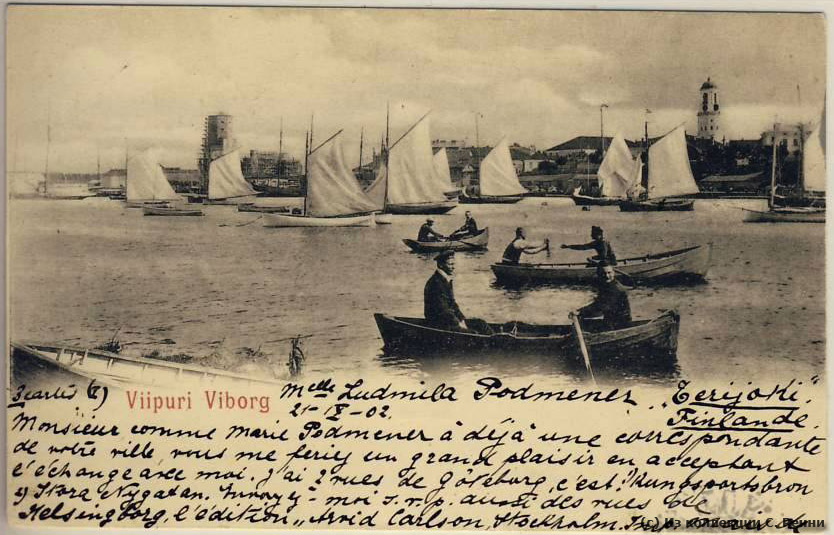 3 cartes (7)
Viipuri Viborg
Mlle Ludmila Podmener „Terijoki".
21-IX-02. Finlande.
Monsieur comme Marie Podmener à déjà une correspondante
de votre ville, vous me feriez un grand plaisir en acceptant
l'échange avec moi. J'ai 2 vues de Göteborg, c'est: 1) Kungsportsbron
2) Stora Nygaten. Envoyez-moi s.v.p. aussi des vues de
Helsingborg, l'édition „Arvid Carlson, Stockholm.
(c) Из коллекции С. Ренни